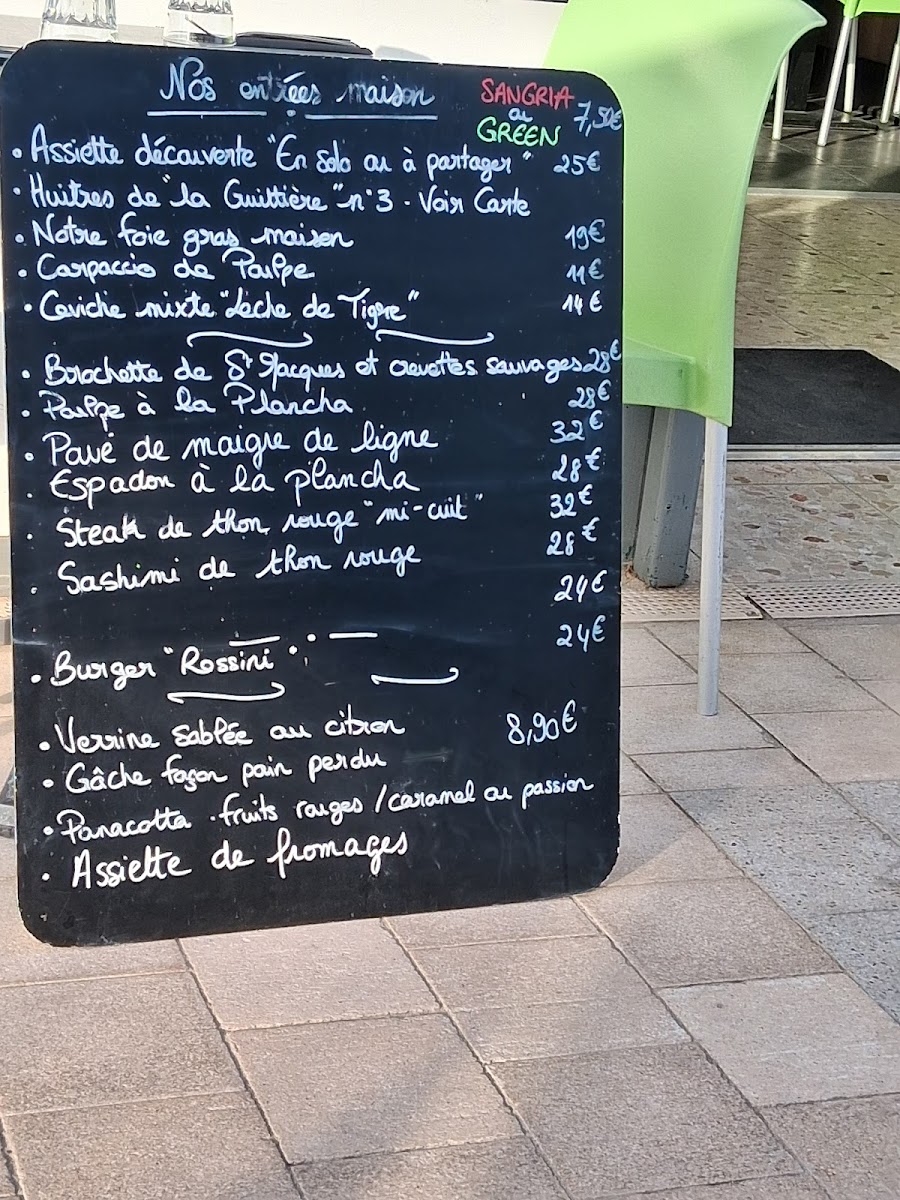 Nos entrées maison
SANGRIA
ou
GREEN
7,50€
• Assiette découverte "En solo ou à partager" 25€
• Huitres de "la Guittière" n°3 - Voir Carte
• Notre foie gras maison 19€
• Carpaccio de Poulpe 11€
• Ceviche mixte "Leche de Tigre" 14€
• Brochette de St Jacques et crevettes sauvages 28€
• Poulpe à la Plancha 28€
• Pavé de maigre de ligne 32€
• Espadon à la plancha 28€
• Steak de thon rouge "mi-cuit" 32€
28€
• Sashimi de thon rouge 24€
24€
• Burger "Rossini"
• Verrine sablée au citron 8,90€
• Gâche façon pain perdu
• Panacotta · fruits rouges / caramel ou passion
• Assiette de fromages